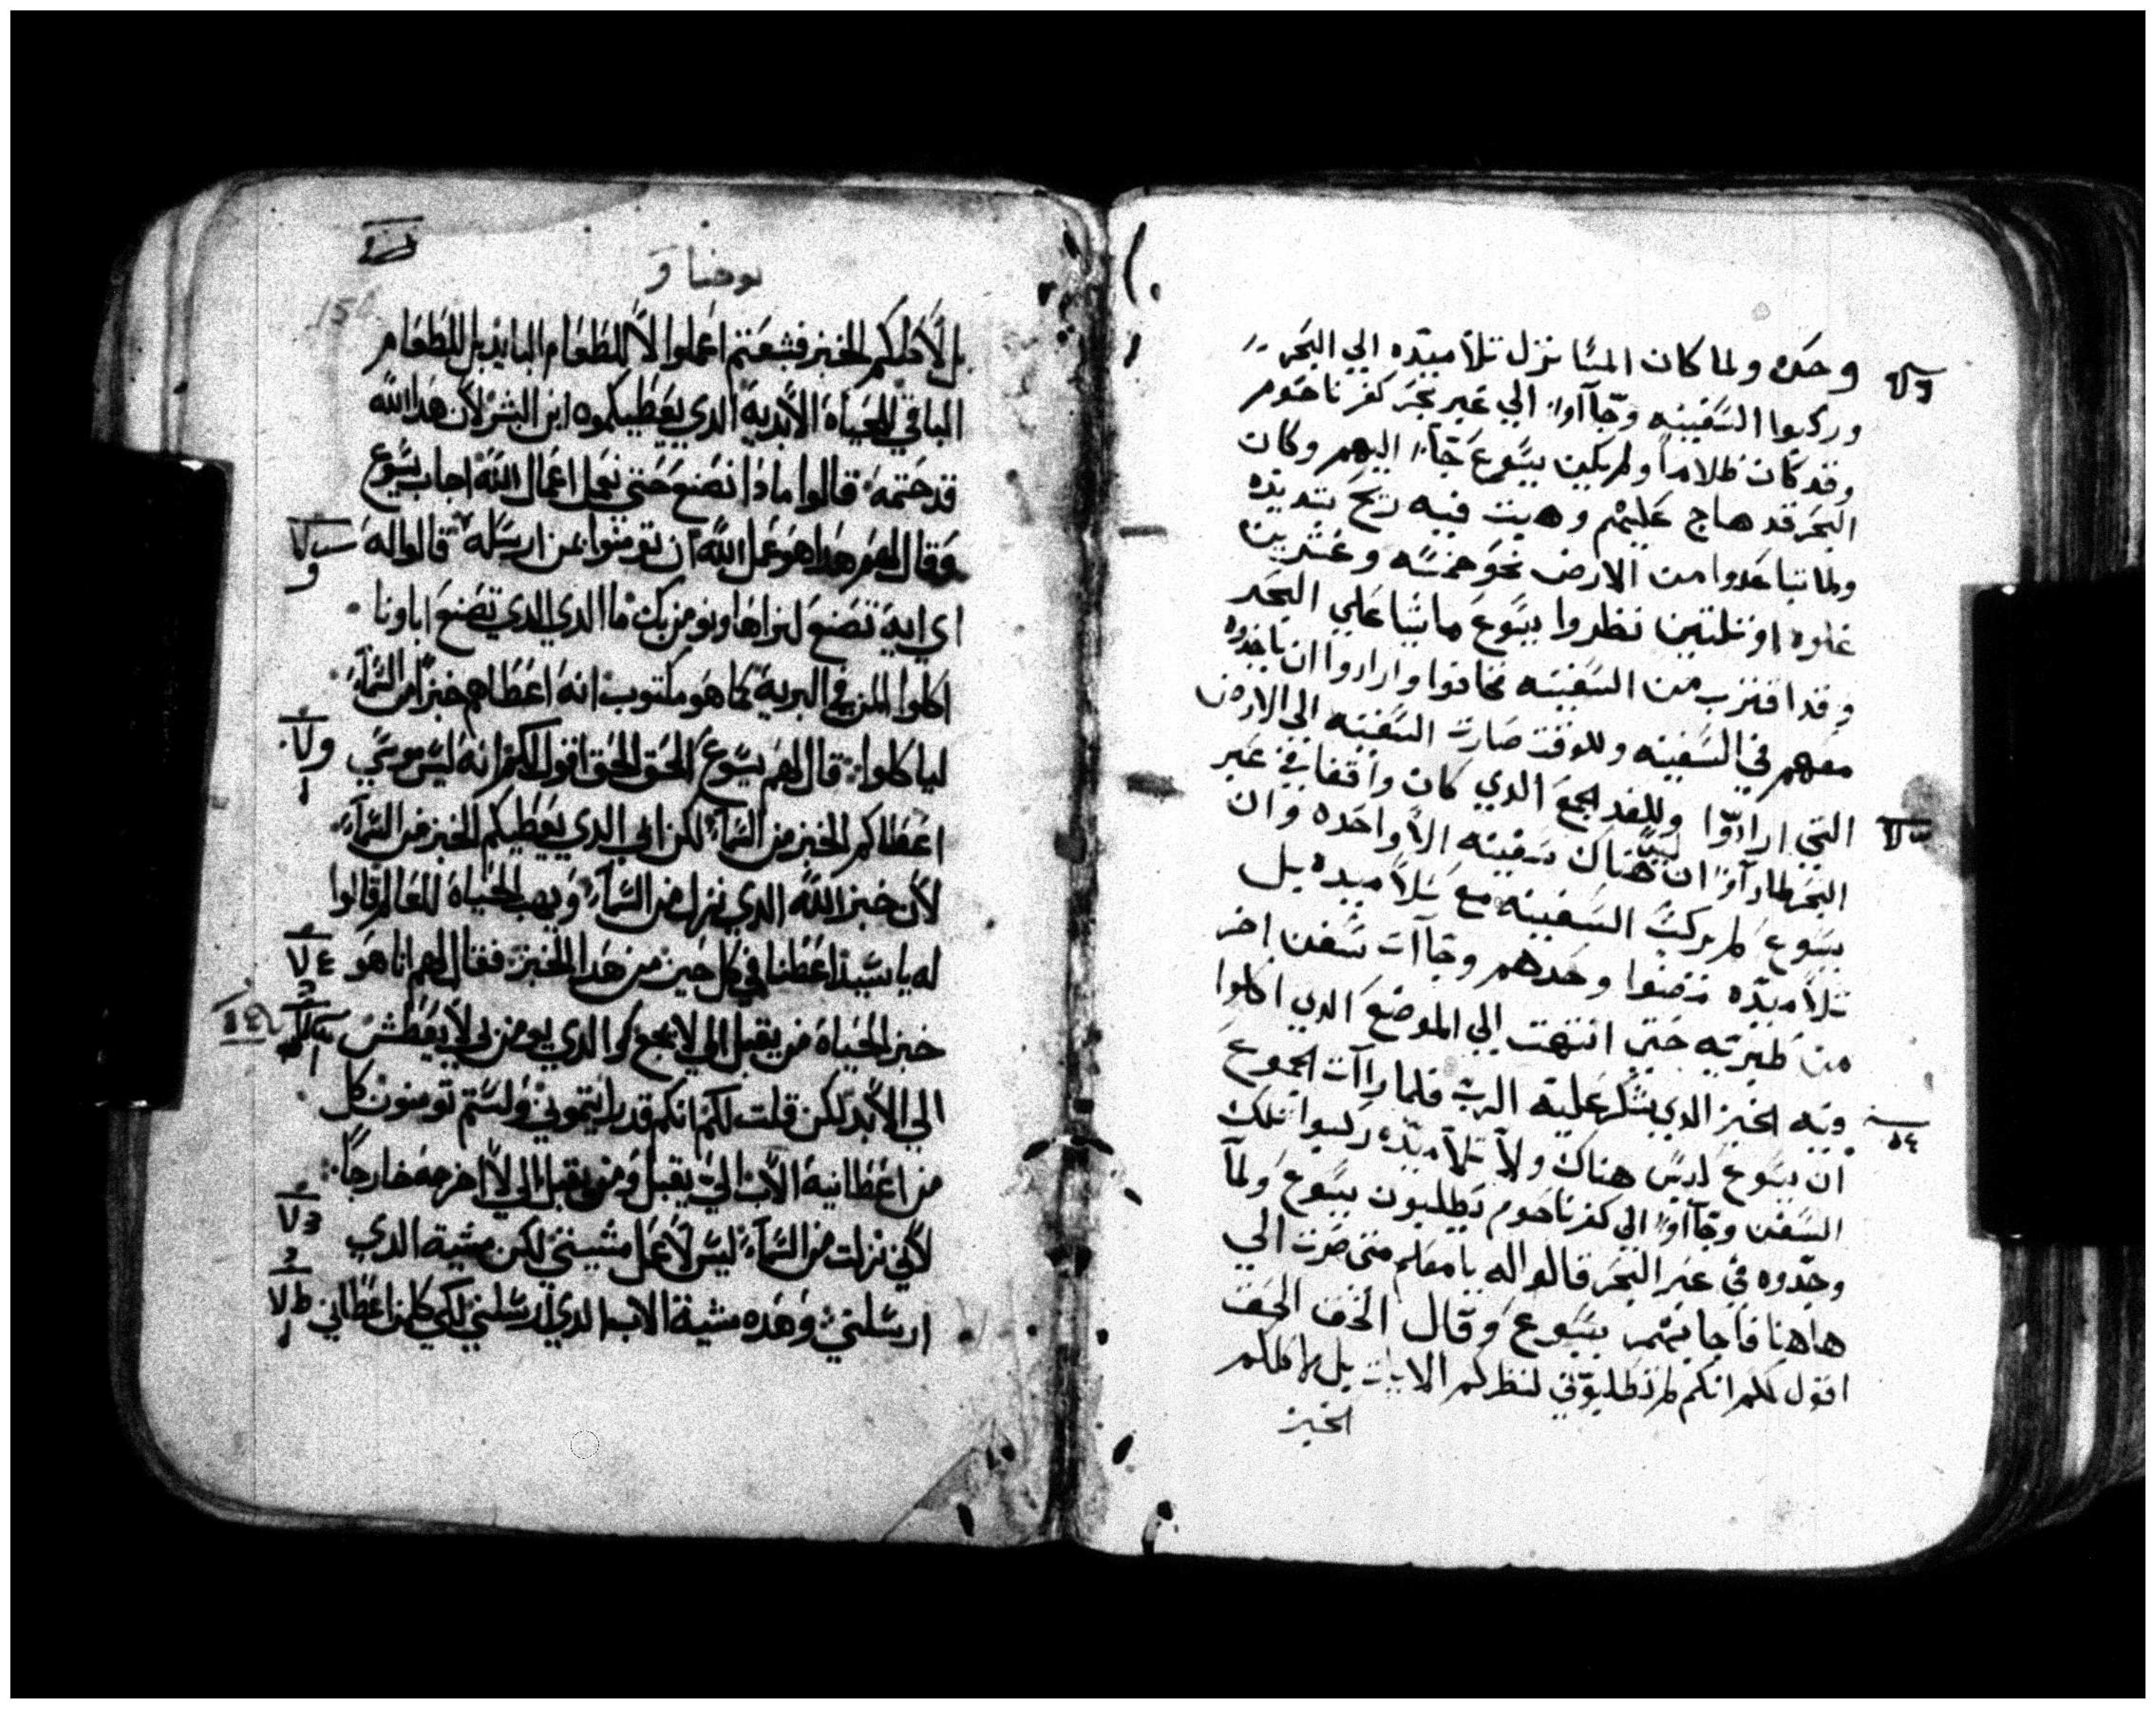 وحده ولما كان المسا نزل تلاميده الي البحر
وركبوا السفينه وجآاوا الي عبر بحر كفرناحوم
وقد كان ظلاماً ولم يكن يسوع جآء اليهم وكان
البحر قد هاج عليهم وهبت فيه ريح شديده
ولما تباعدوا من الارض نحو خمسه وعشرين
غلوه او ثلثين نظروا يسوع ماشيا علي البحر
وقد اقترب من السفينه فخافوا وارادوا ان ياخدوه
معهم في السفينه وللوقت صارت السفينه الي الارض
التي ارادوا وللغد الجمع الدي كان واقفا في عبر
البحر لما رآوا ان ليس هناك سفينه الا واحده وان
يسوع لم يركب السفينه مع تلاميده بل
تلاميده مضوا وحدهم وجآات سفن اخر
من طبريه حتي انتهت الي الموضع الدي اكلوا
فيه الخبز الدي شكر عليه الرب فلما رآات الجموع
ان يسوع ليس هناك ولا تلاميده ركبوا تلك
السفن وجآاوا الي كفرناحوم يطلبون يسوع ولما
وجدوه في عبر البحر قالوا له يا معلم متي صرت الي
هاهنا فاجابهم يسوع وقال الحق الحق
اقول لكم انكم لم تطلبوني لنظركم الايات بل لاكلكم
الخبز
يوحنا و
بل لاكلكم الخبز فشبعتم اعملوا لا للطعام البايد بل للطعام
الباقي للحياة الابدية الدي يعطيكموه ابن البشر لان هدا الله
قد ختمه قالوا مادا نصنع حتي نعمل اعمال الله اجاب يسوع
وقال لهم هدا هو عمل الله ان تومنوا بمن ارسله قالوا له
اي اية تصنع لنراها ونومن بك ما الدي الدي تصنع اباونا
اكلوا المن في البرية كما هو مكتوب انه اعطاهم خبزا من السمآء
لياكلوا قال لهم يسوع الحق الحق اقول لكم انه ليس موسي
اعطاكم الخبز من السمآء لكن ابي الدي يعطيكم الخبز من السمآء
لان خبز الله الدي نزل من السمآء ويهب الحياة للعالم قالوا
له يا سيد اعطنا في كل حين من هدا الخبز فقال لهم انا هو
خبز الحياة من يقبل الي لا يجوع والدي يومن بي لا يعطش
الي الابد لكن قلت لكم انكم قد رايتموني ولستم تومنون كل
من اعطانيه الاب الي يقبل ومن يقبل الي لا اخرجه خارجاً
لاني نزلت من السمآء ليس لاعمل مشيتي لكن مشية الدي
ارسلني وهده مشية الاب الدي ارسلني لكي كلمن اعطاني